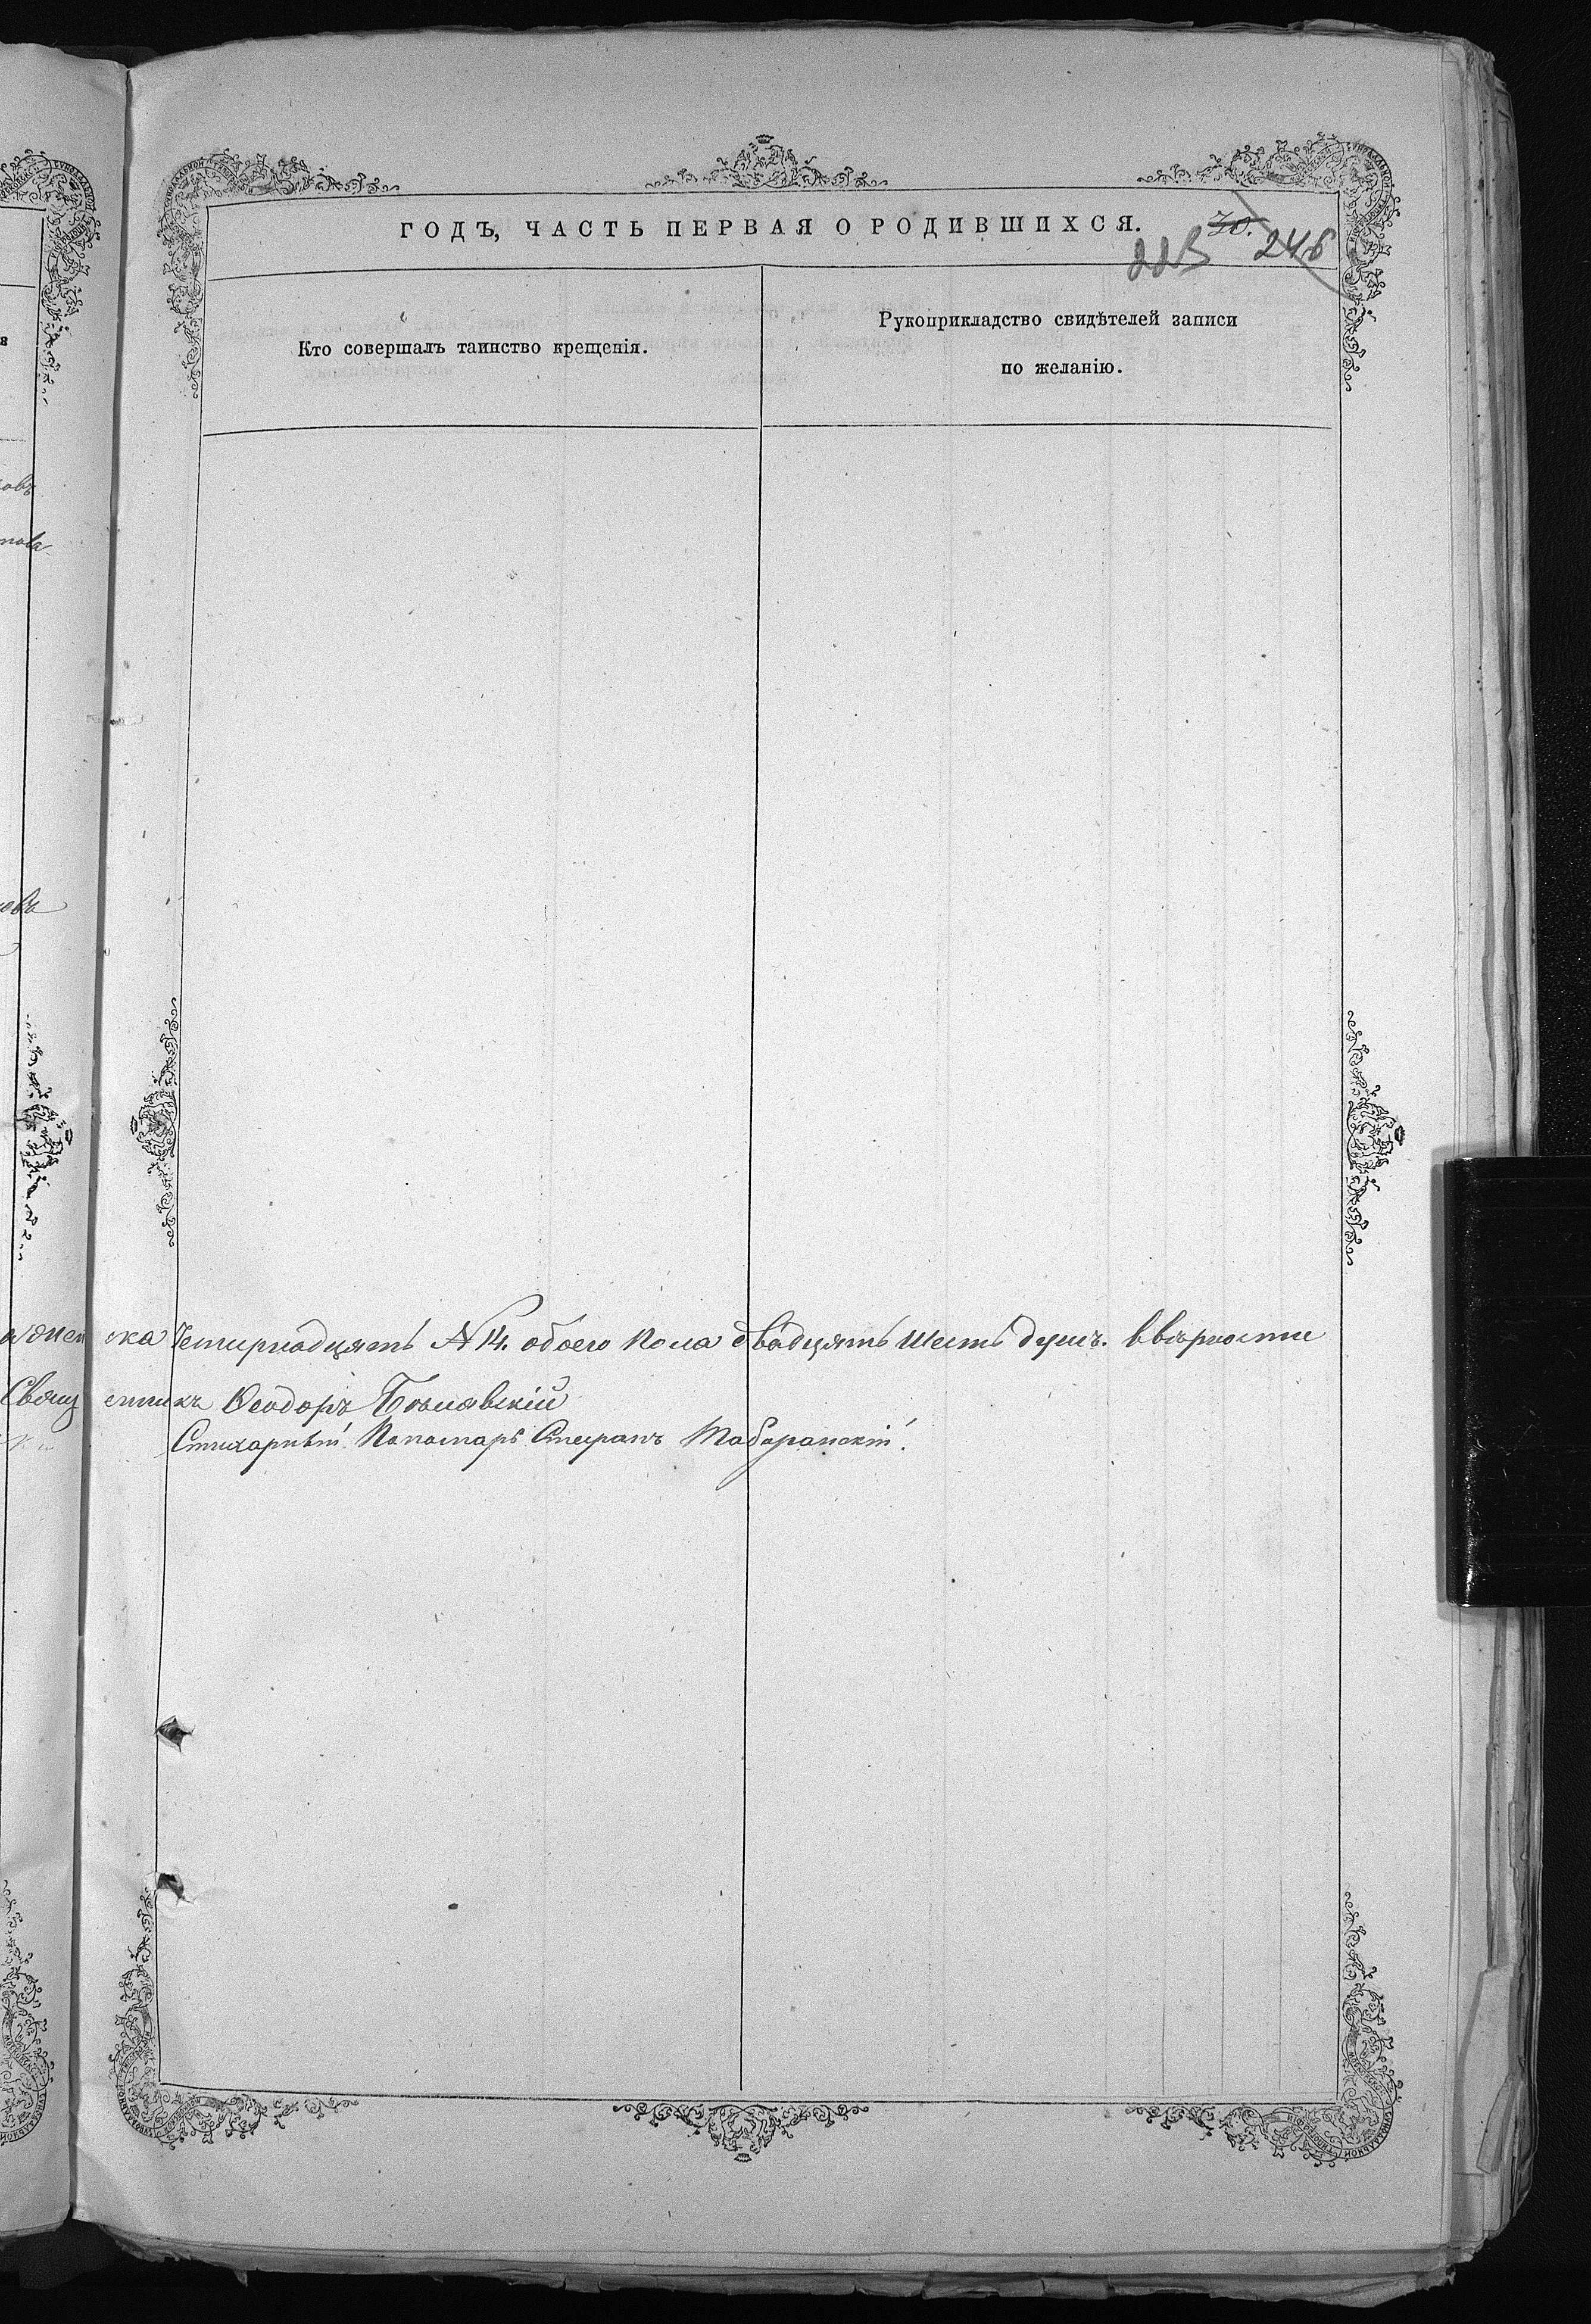 ГОДЪ, ЧАСТЬ ПЕРВАЯ О РОДИВШИХСЯ.
70.
223 246
Кто совершалъ таинство крещенія.
Рукоприкладство свидѣтелей записи
по желанію.
ска Четырнадцять №14. обоего пола двадцять шесть душъ. ввѣрности
Свящ енникъ Ѳеодоръ Бѣлявскій
Стихарный Пономарь Стефанъ Таборанскій.